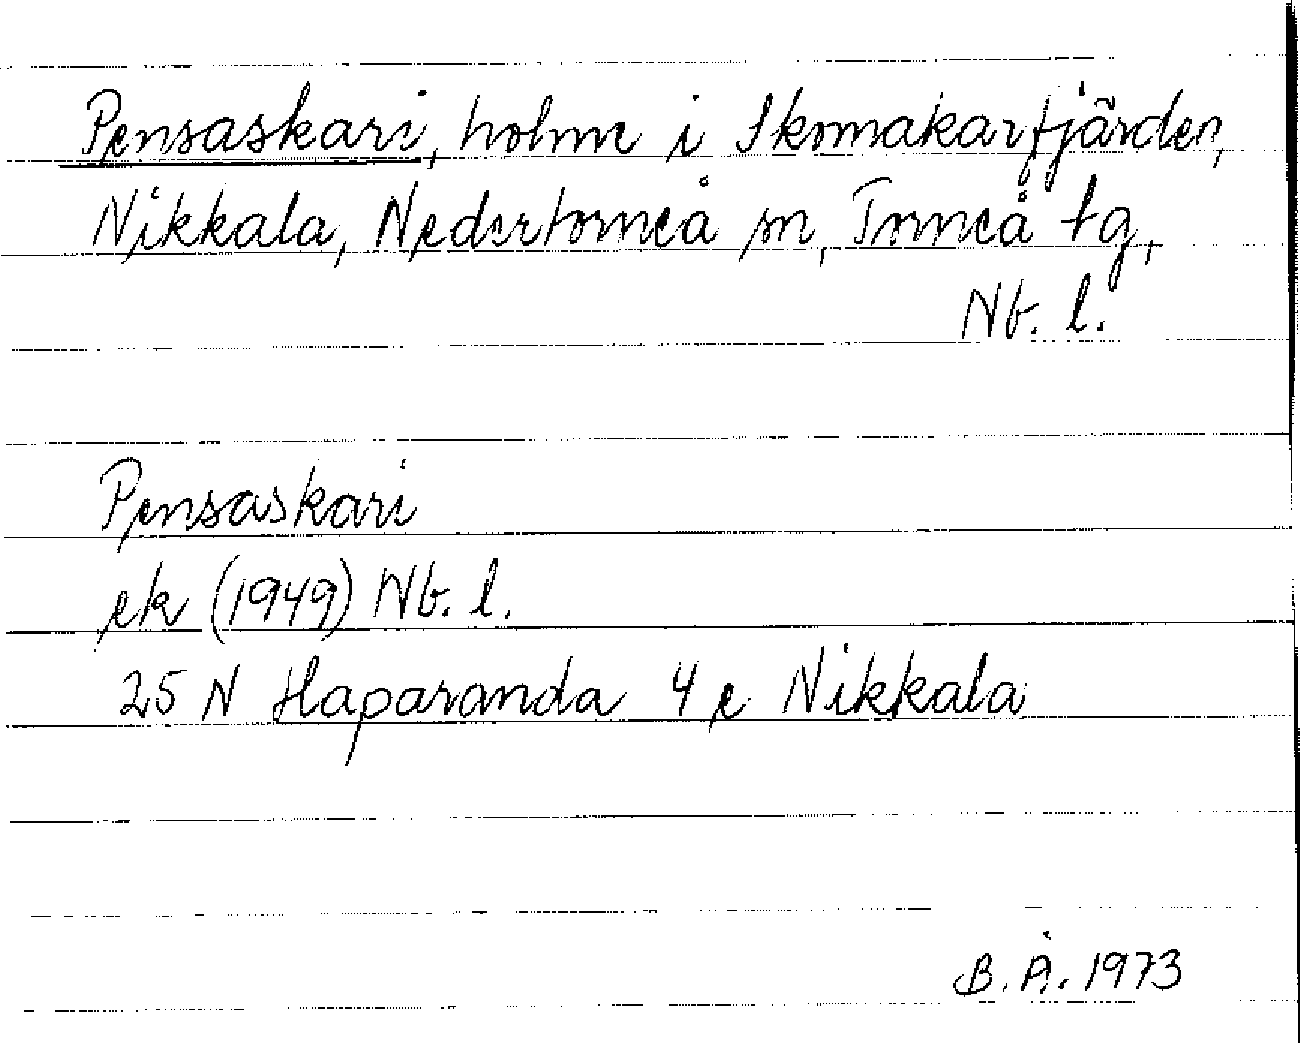 Pensaskari, holme i Skomakarfjärden,
Nikkala, Nedertorneå sn, Torneå tg,
Nb. l.
Pensaskari
ek (1949) Nb. l.
25 N Haparanda 4 e Nikkala
B. Å. 1973